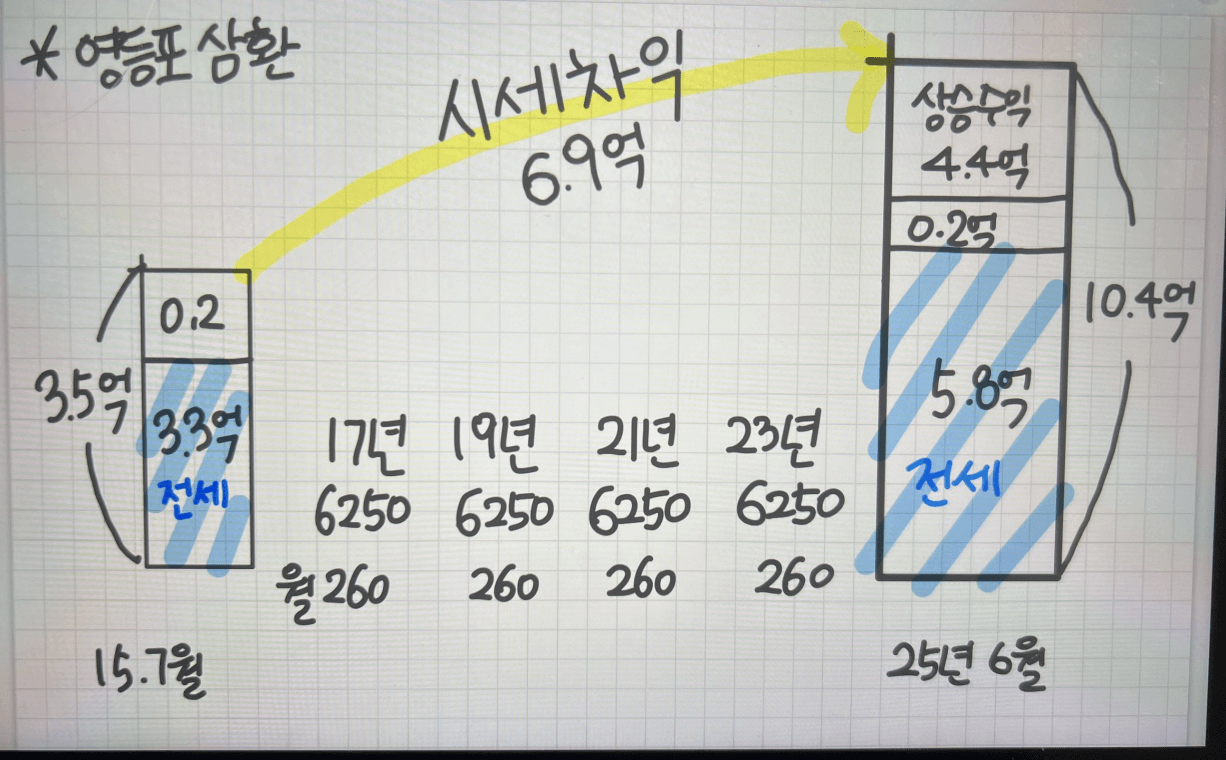 * 영등포 삼환
시세차익
6.9억
0.2
3.5억
3.3억
전세
15.7월
17년 19년 21년 23년
6250 6250 6250 6250
월260 260 260 260
상승수익
4.4억
0.2억
10.4억
5.8억
전세
25년 6월